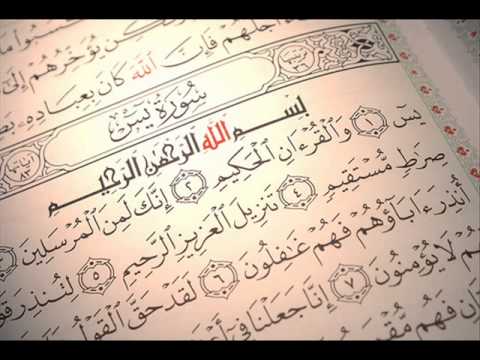 سَبُوا مَا
كِن يُؤَخِّرُهُمْ إِلَىٰ
أَجَلُهُمْ فَإِنَّ ٱللَّهَ كَانَ بِعِبَادِهِۦ
سُورَةُ يسٓ
بِسْمِ ٱللَّهِ ٱلرَّحْمَٰنِ ٱلرَّحِيمِ
يسٓ ١ وَٱلْقُرْءَانِ ٱلْحَكِيمِ ٢ إِنَّكَ لَمِنَ ٱلْمُرْسَلِينَ
صِرَٰطٍ مُّسْتَقِيمٍ ٤ تَنزِيلَ ٱلْعَزِيزِ ٱلرَّحِيمِ ٥ لِتُنذِرَ قَوْ
أُنذِرَ ءَابَآؤُهُمْ فَهُمْ غَٰفِلُونَ ٦ لَقَدْ حَقَّ ٱلْقَوْلُ
هُمْ لَا يُؤْمِنُونَ ٧ إِنَّا جَعَلْنَا فِىٓ
انِ فَهُم